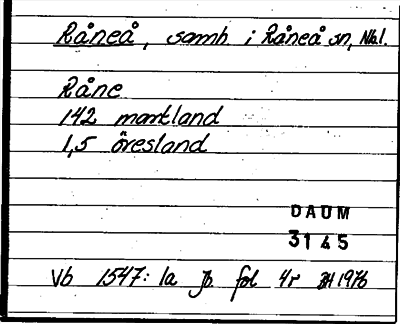 Råneå, samh. i Råneå sn, Nbl.
Råne
142 markland
1,5 öresland
DAUM
3145
Vb 1547: 1a Jb fol 4r BH 1976